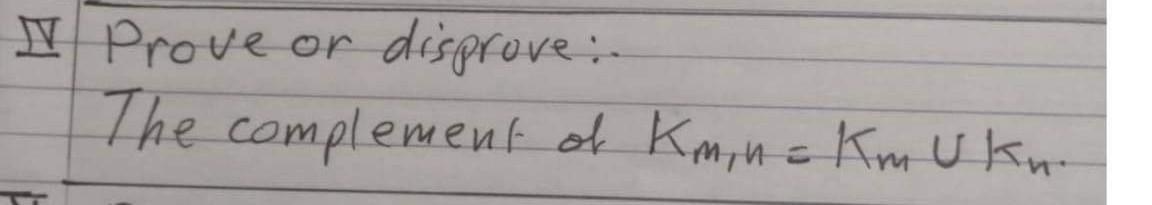 IV Prove or disprove:-
The complement of Km,n = Km ∪ Kn.